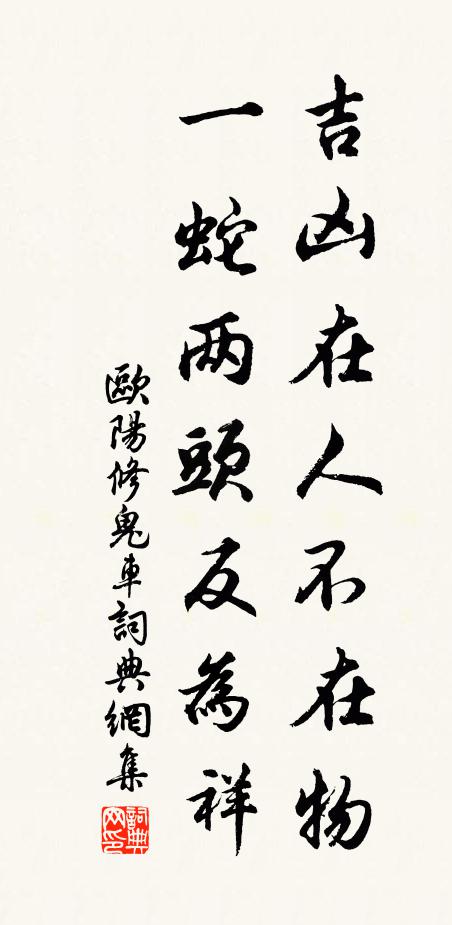 吉凶在人不在物
一蛇两頭反為祥
歐陽修鬼車詞典網集
詞典网印